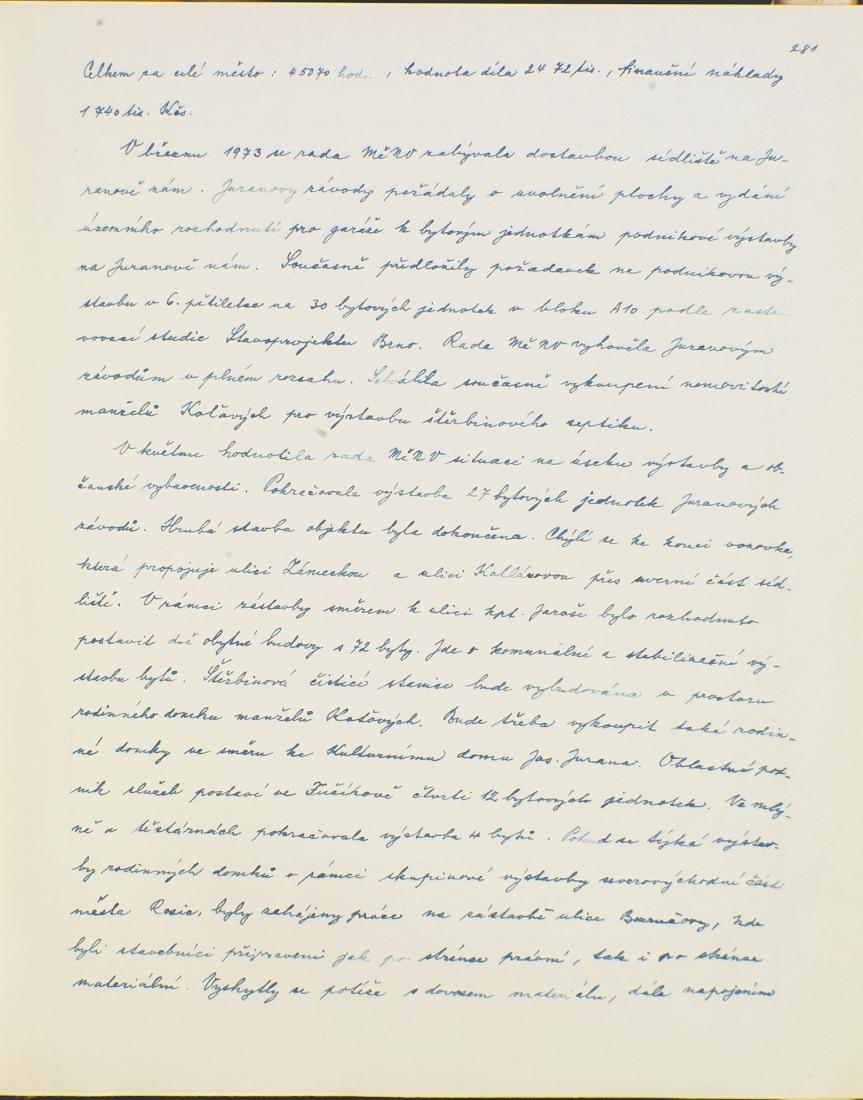 281
Celkem za celé město: 45070 hod., hodnota díla 2472 tis., finanční náklady
1740 tis. Kčs.
V březnu 1973 se rada MěNV zabývala dostavbou sídliště na Ju-
ranově nám. Juranovy závody požádaly o uvolnění plochy a vydání
územního rozhodnutí pro garáže k bytovým jednotkám podnikové výstavby
na Juranově nám. Současně předložily požadavek na podnikovou vý-
stavbu v 6. pětiletce na 30 bytových jednotek v bloku A10 podle zasta-
vovací studie Stavoprojektu Brno. Rada MěNV vyhověla Juranovým
závodům v plném rozsahu. Schválila současně vykoupení nemovitostí
manželů Košťových pro výstavbu štěrbinového septiku.
V květnu hodnotila rada MěNV situaci na úseku výstavby a ob-
čanské vybavenosti. Pokračovala výstavba 27 bytových jednotek Juranových
závodů. Hrubá stavba objektu byla dokončena. Chýlí se ke konci vozovka,
která propojuje ulici Zámeckou a ulici Kollárovou přes severní část síd-
liště. V rámci zástavby směrem k ulici kpt. Jaroše bylo rozhodnuto
postavit dvě obytné budovy s 72 byty. Jde o komunální a stabilizační vý-
stavbu bytů. Štěrbinová čistící stanice bude vybudována v prostoru
rodinného domku manželů Košťových. Bude třeba vykoupit také rodin-
né domky ve směru ke Kulturnímu domu Jos. Jurana. Oblastní pod-
nik služeb postaví ve Fučíkově čtvrti 12 bytových jednotek. Ve mlý-
ně a těstárnách pokračovala výstavba 4 bytů. Pokud se týká výstav-
by rodinných domků v rámci skupinové výstavby severovýchodní část
města Rosic, byly zahájeny práce na zástavbě ulice, kde
byli stavebníci připraveni jak po stránce právní, tak i po stránce
materiální. Vyskytly se potíže s dovozem materiálu, dále napojením